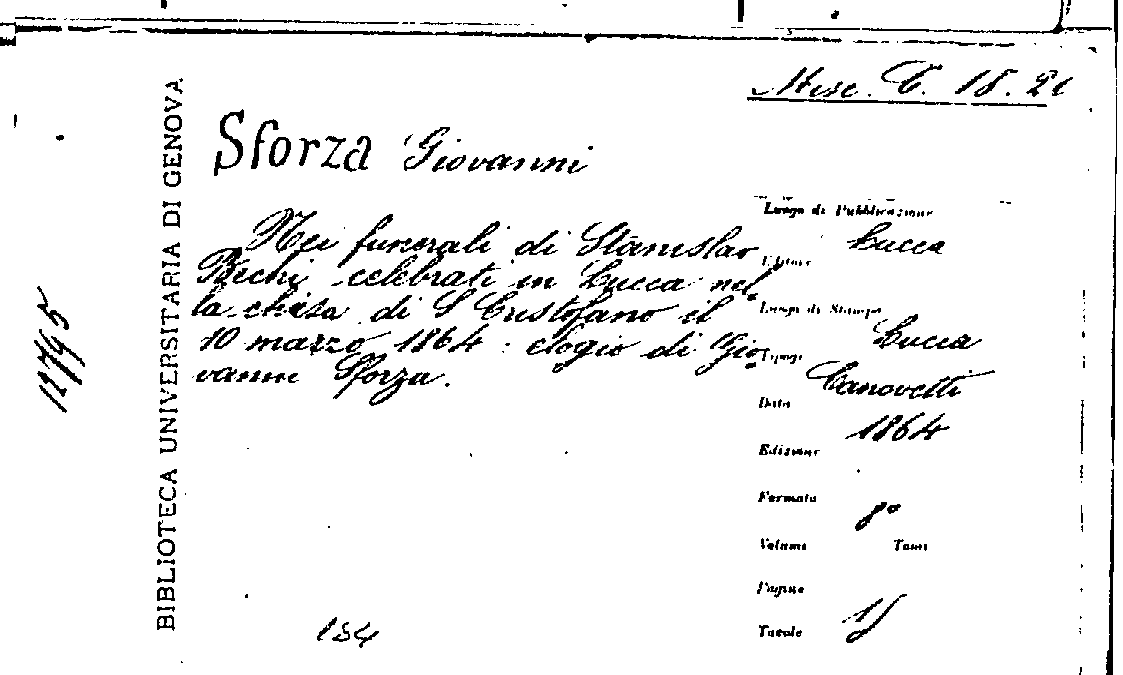 Misc. C. 18. 21
BIBLIOTECA UNIVERSITARIA DI GENOVA
Sforza Giovanni
Nei funerali di Stanislao
Bechi celebrati in Lucca nel
la chiesa di S Cristofano il
10 marzo 1864 : elogio di Gio
vanni Sforza.
Luogo di Pubblicazione
Lucca
Editore
Luogo di Stampa
Lucca
Tipogr.
Canovetti
Data
1864
Edizione
Formato
8°
Volumi Tomi
Pagine
15
Tavole
154